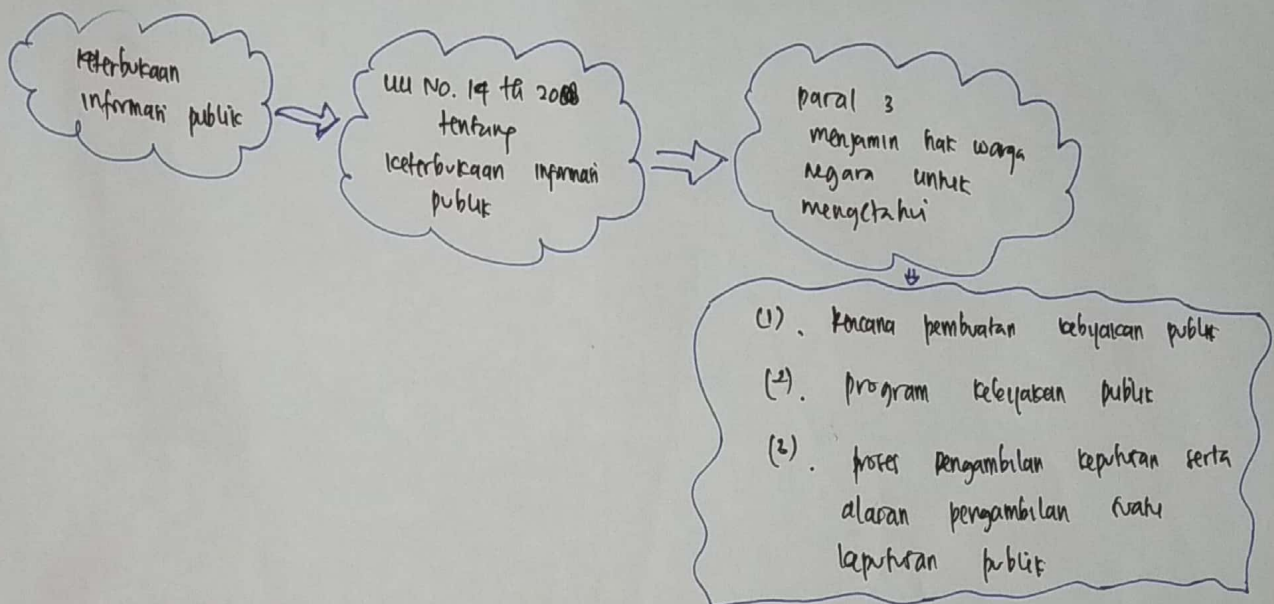 keterbukaan
informasi publik
UU No. 14 th 2008
tentang
keterbukaan informasi
publik
pasal 3
menjamin hak warga
negara untuk
mengetahui
(1). Rencana pembuatan kebijakan publik
(2). program kebijakan publik
(3). proses pengambilan keputusan serta
alasan pengambilan suatu
keputusan publik